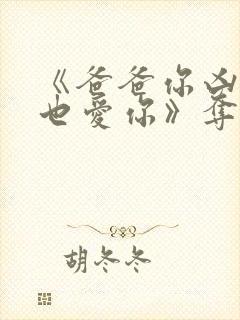 《爸爸你凶
也爱你》夺
胡冬冬